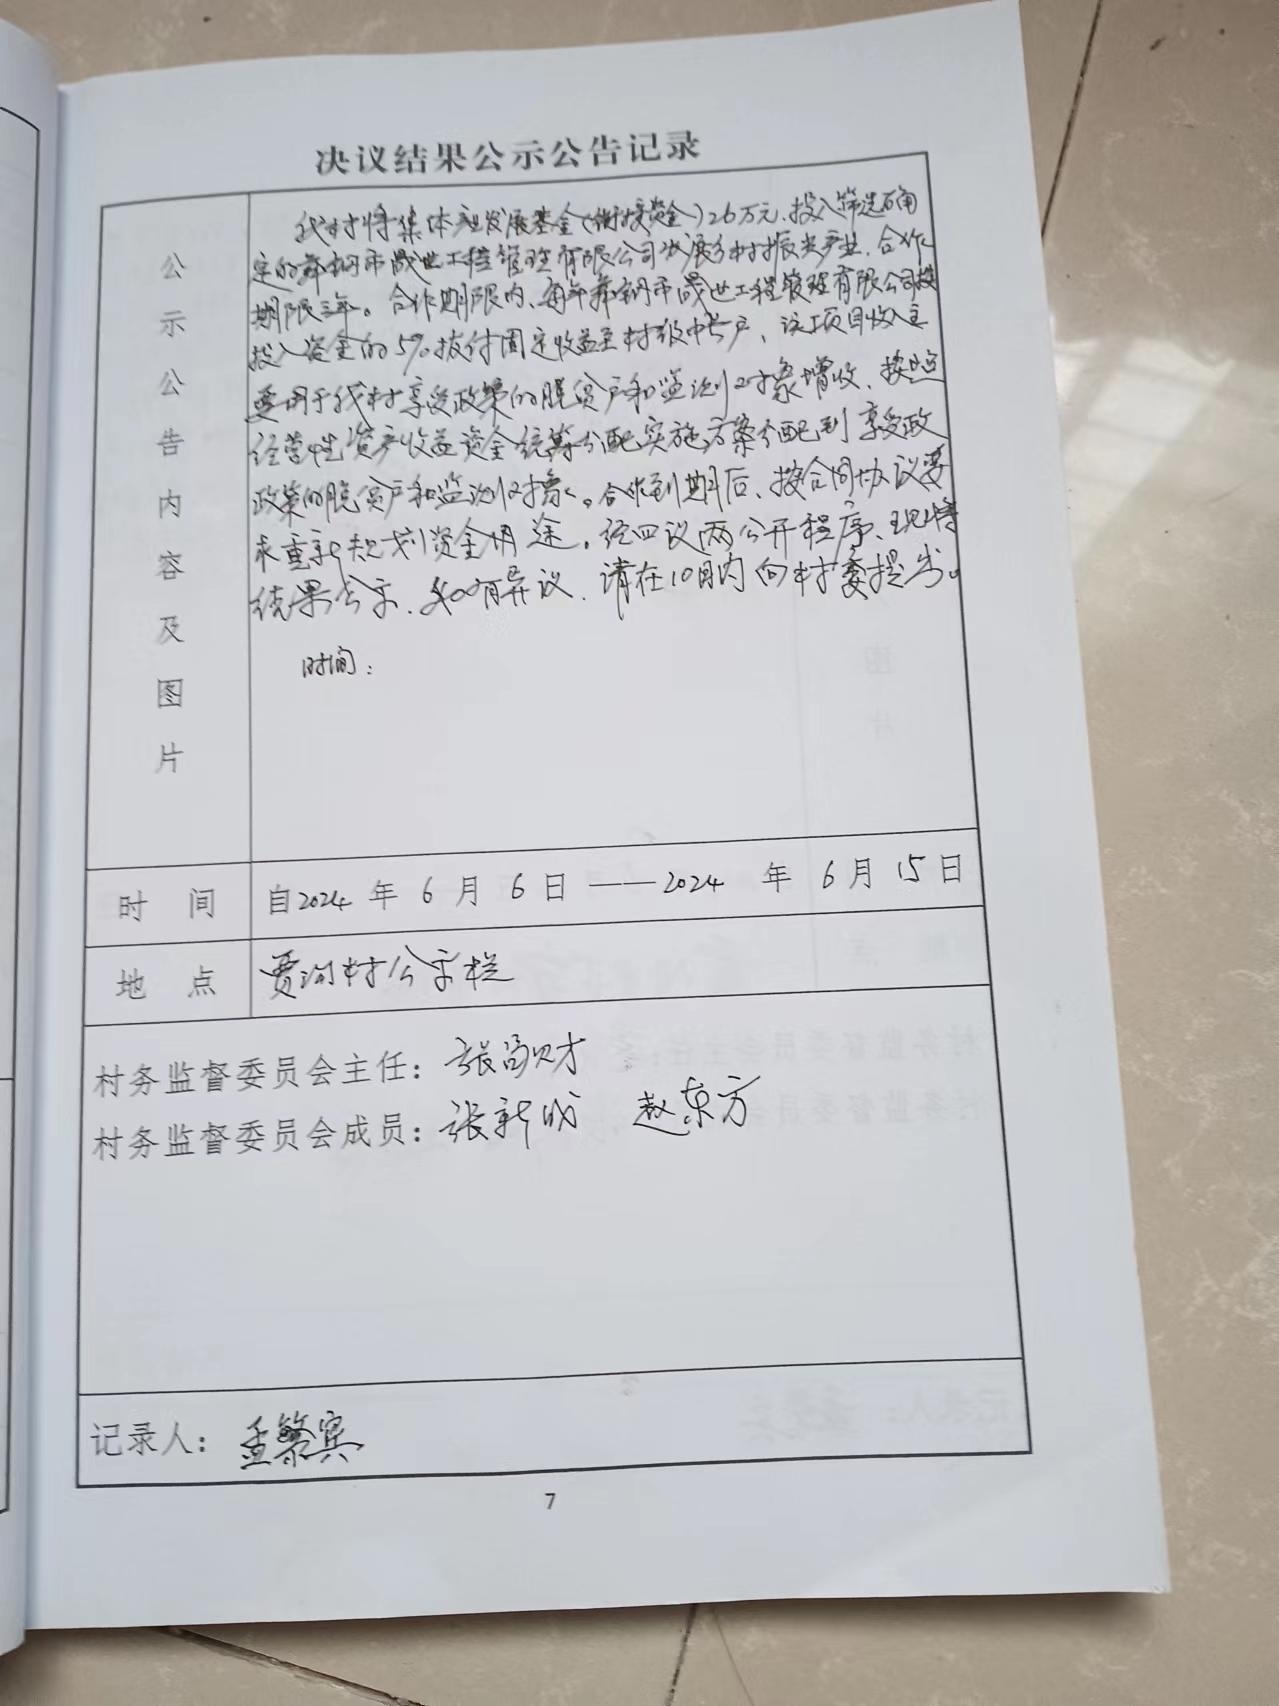 决议结果公示公告记录
公示公告内容及图片
我村将集体产业发展基金(衔接资金)26万元、投入筛选确
定的舞钢市晟世工程管理有限公司发展乡村振兴产业、合作
期限三年。合作期限内、每年舞钢市晟世工程管理有限公司按
投入资金的5%拨付固定收益至村级中专户、该项目收入主
要用于我村享受政策的脱贫户和监测对象增收、按照
经营性资产收益资金统筹分配实施方案分配到享受政
政策的脱贫户和监测对象。合作到期后、按合同协议要
求重新规划资金用途。经四议两公开程序、现将
结果公示、如有异议、请在10日内向村委提出。
时间:
时 间 自2024 年 6 月 6 日 ——2024 年 6 月 15 日
地 点 贾沟村公示栏
村务监督委员会主任:张富财
村务监督委员会成员:张新成 赵东方
记录人:孟繁宾
7